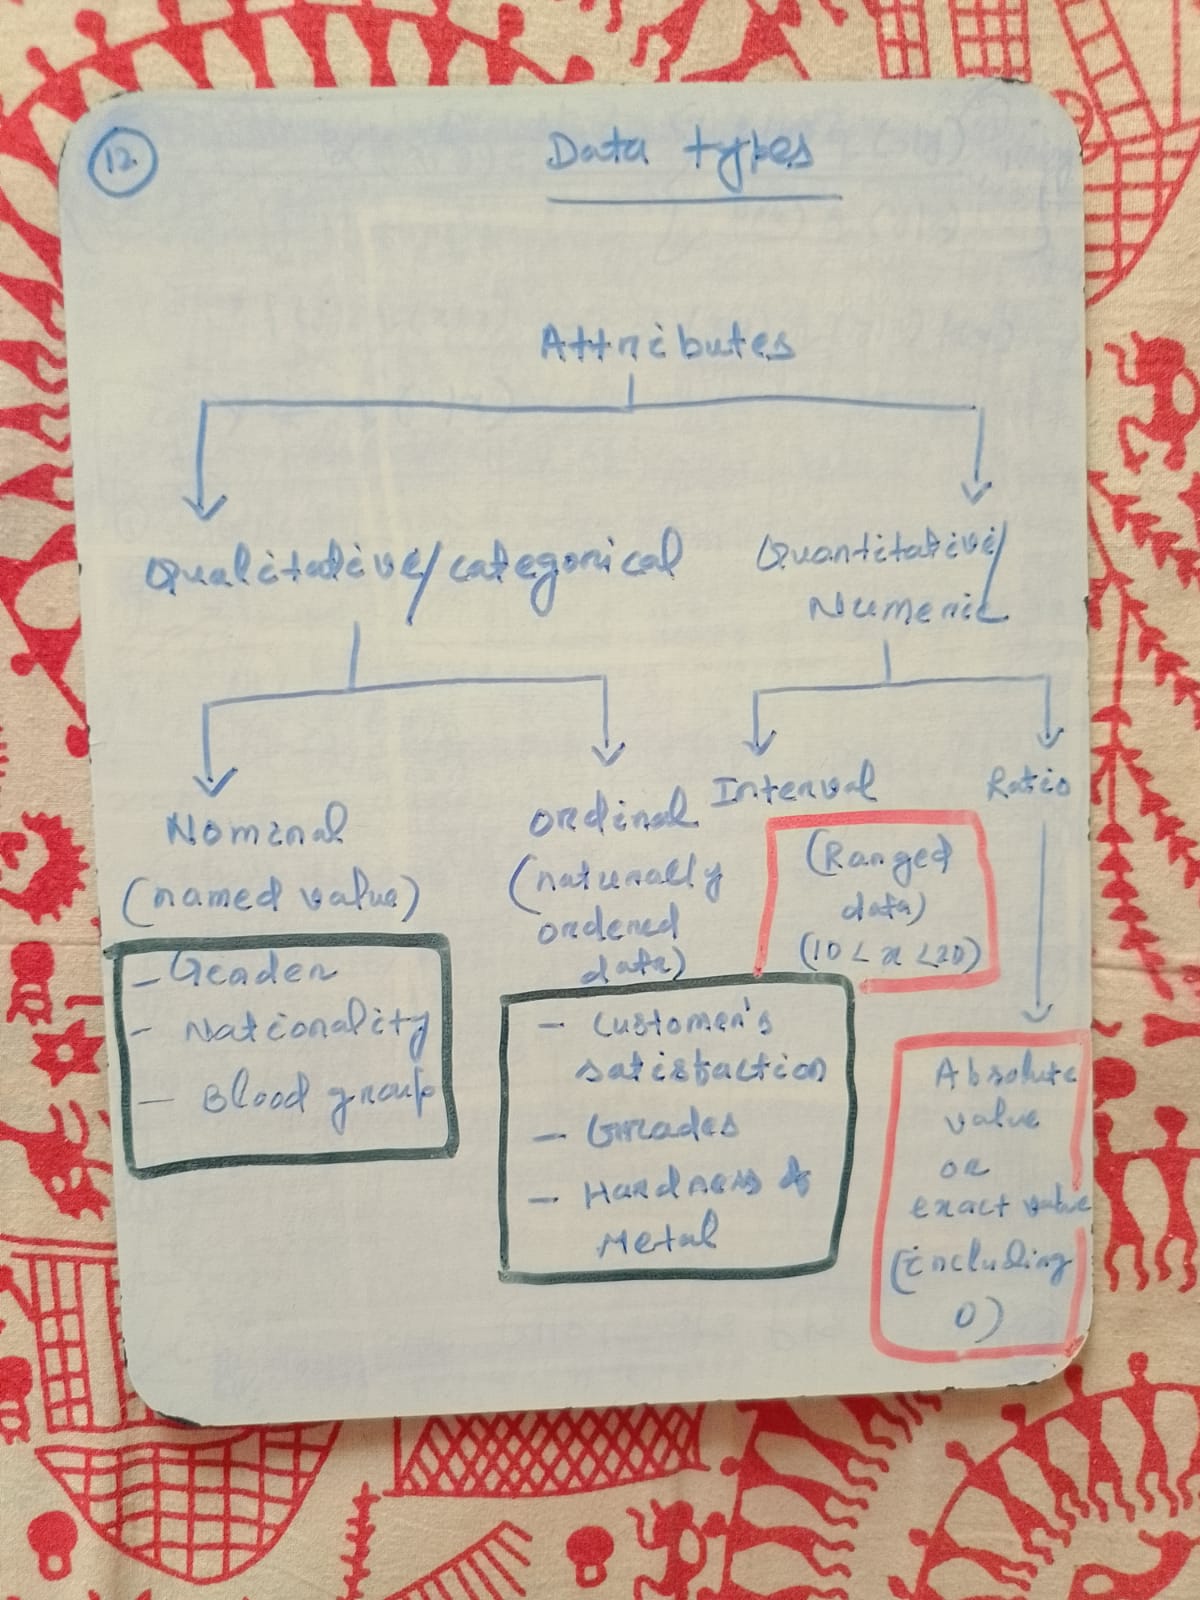 12
Data types
Attributes
Qualitative/categorical
Quantitative/
Numeric
Nominal
(named value)
- Gender
- Nationality
- Blood group
Ordinal
(naturally
ordered
data)
- Customer's
satisfaction
- Grades
- Hardness of
Metal
Interval
(Ranged
data)
(10 < x < 20)
Ratio
Absolute
value
or
exact value
(including
0)